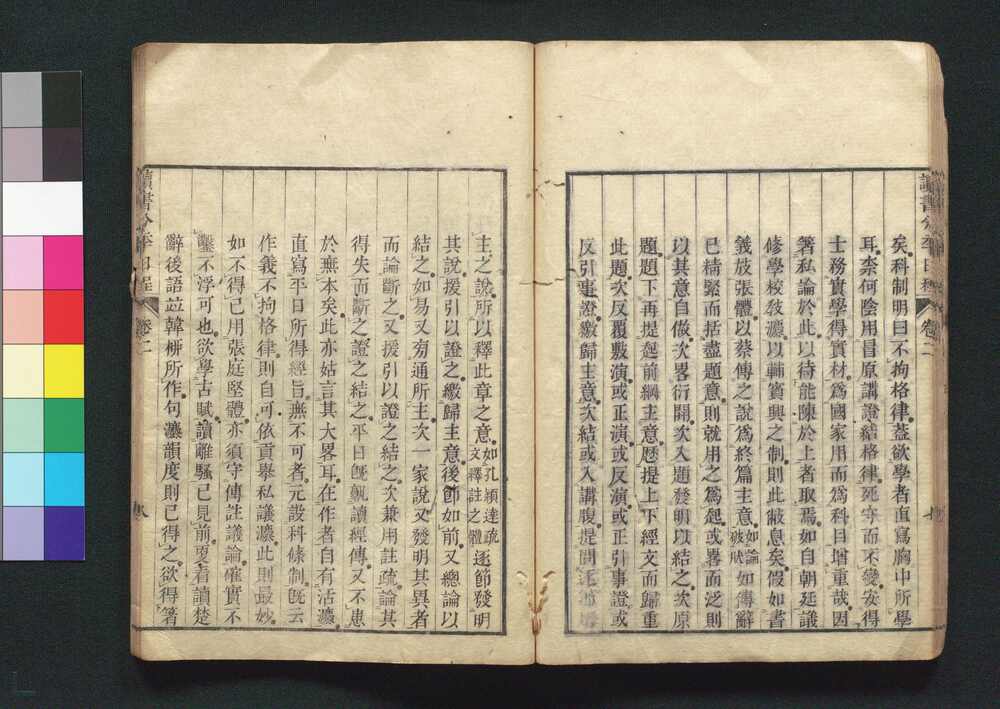 矣科制明曰不拘格律葢欲學者直寫胸中所學
耳柰何陰用冒原講證結格律死守而不變安得
士務實學得實材爲國家用而爲科目增重哉因
著私論於此以待能陳於上者取焉如自朝廷議
修學校敎灋以輔賓興之制則此敝息矣假如書
義放張體以蔡傳之說爲終篇主意如論破吠如傳辭
已精緊而括盡題意則就用之爲起或畧而泛則
以其意自做次畧衍開次入題發明以結之次原
題題下再提起前綱主意歷提上下經文而歸重
此題次反覆敷演或正演或反演或正引事證或
反引事證繳歸主意次結或入講腹提問逐節
主之說所以釋此章之意如孔穎達疏文釋註之體逐節發明
其說援引以證之繳歸主意後節如前又總論以
結之如易又旁通所主次一家說又發明其異者
而論斷之又援引以證之結之次兼用註疏論其
得失而斷之證之結之平日旣熟讀經傳又不患
於無本矣此亦姑言其大畧耳在作者自有活灋
直寫平日所得經旨無不可者元設科條制旣云
作義不拘格律則自可依貢舉私議灋此則最妙
如不得已用張庭堅體亦須守傳註議論確實不
鑿不浮可也欲學古賦讀離騷已見前更看讀楚
辭後語竝韓栁所作句灋韻度則已得之欲得著
讀書分年日程
卷二
讀書分年日程
卷二